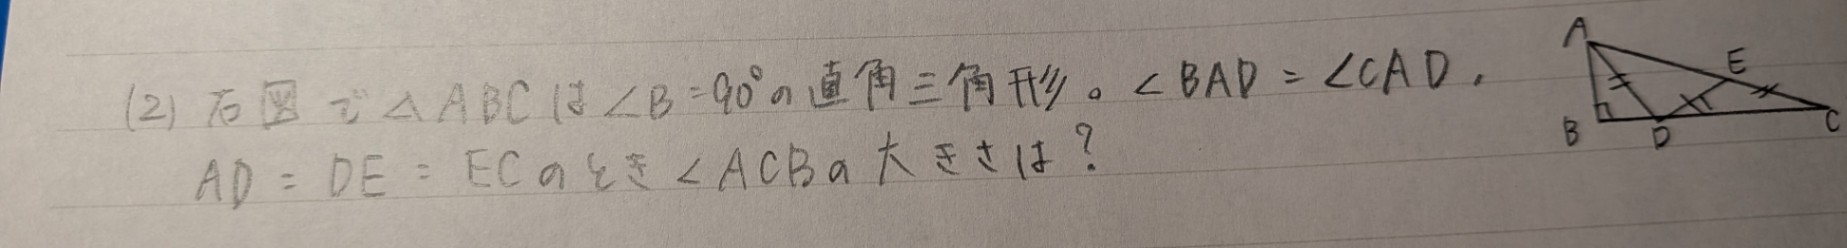 (2) 右図で△ABCは∠B=90°の直角三角形。∠BAD=∠CAD,
AD=DE=ECのとき∠ACBの大きさは?
A
E
B
D
C